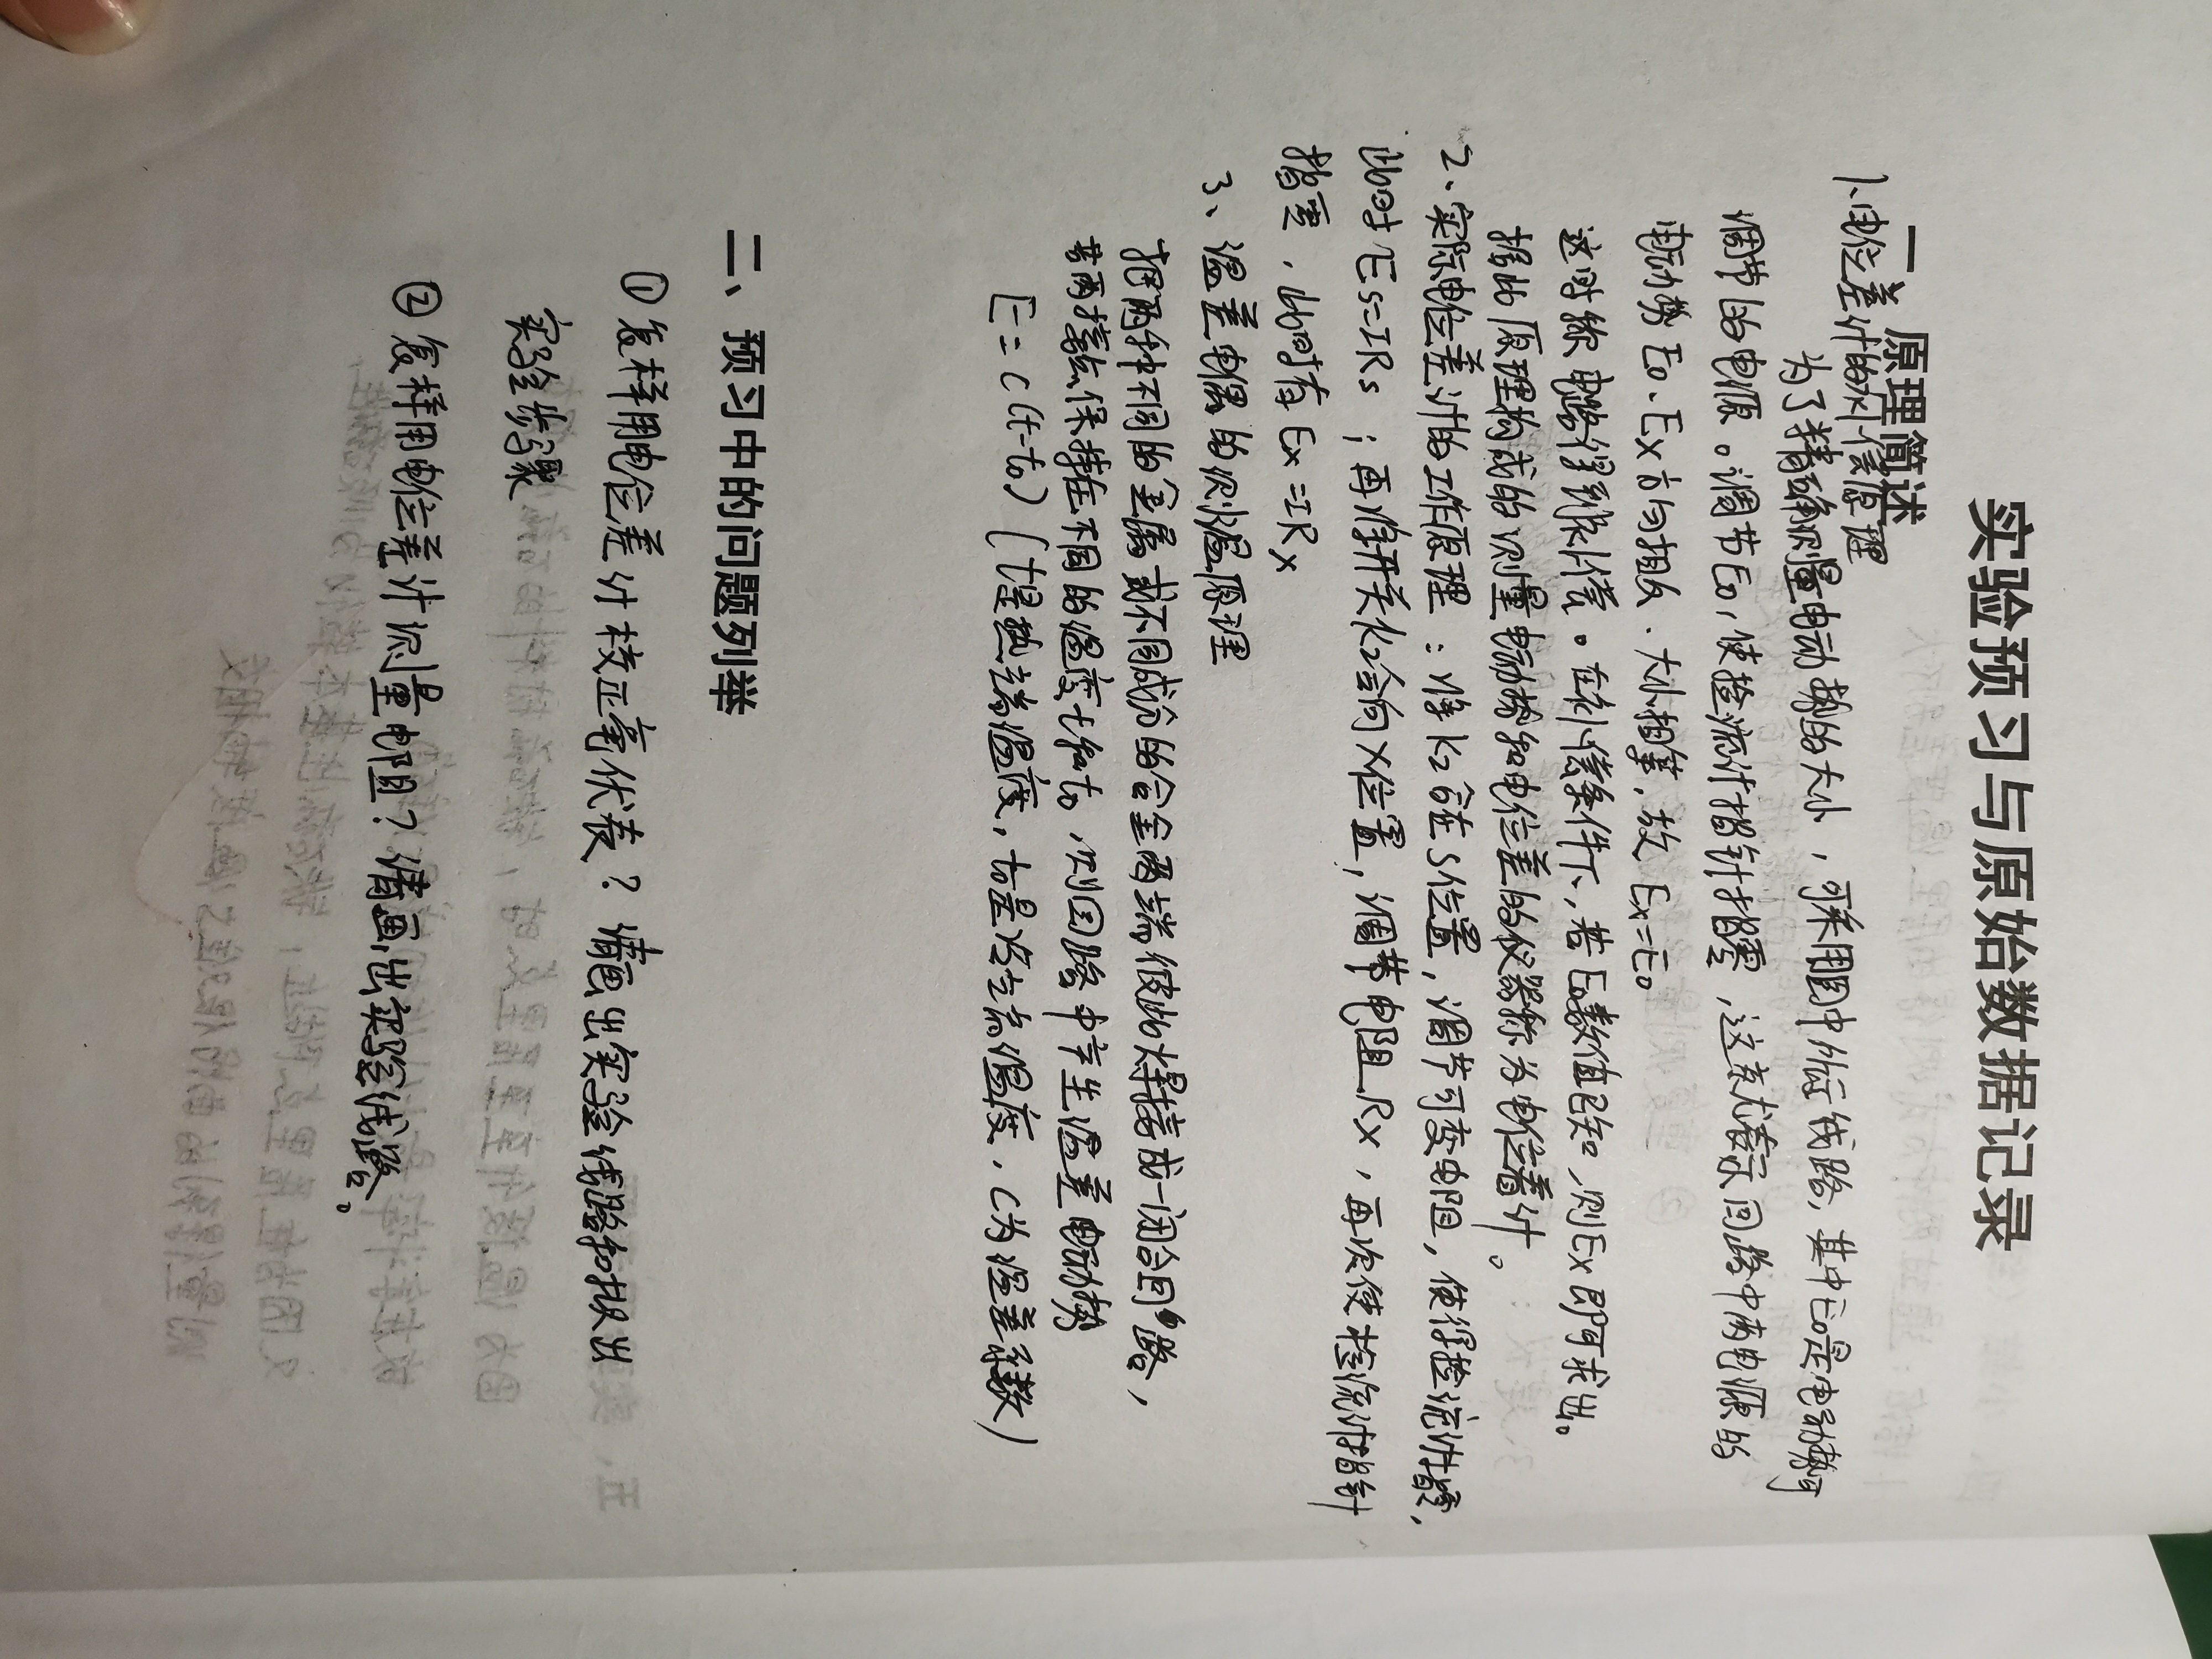 实验预习与原始数据记录
一、原理简述
1、电位差计的补偿原理
为了精确测量电动势的大小，可采用图中所示线路，其中E0是电动势可
调节的电源。调节E0，使检流计指针指零，这就表示回路中两电源的
电动势E0、Ex方向相反、大小相等，故Ex=E0。
这时称电路得到补偿。在补偿条件下，若E0数值已知，则Ex即可求出。
据此原理构成的测量电动势和电位差的仪器称为电位差计。
2、实际电位差计的工作原理：将K2合在S位置，调节可变电阻，使得检流计指零，
此时Es=IRs；再将开关K2合向X位置，调节电阻Rx，再次使检流计指针
指零，此时有Ex=IRx
3、温差电偶的测温原理
把两种不同的金属或不同成分的合金两端彼此焊接成一闭合回路，
若两接点保持在不同的温度t和t0，则回路中产生温差电动势
E=c(t-t0)(t是热端温度，t0是冷端温度，C为温差系数)
二、预习中的问题列举
① 怎样用电位差计校正毫伏表？请画出实验线路和拟出
实验步骤
② 怎样用电位差计测量电阻？请画出实验线路。